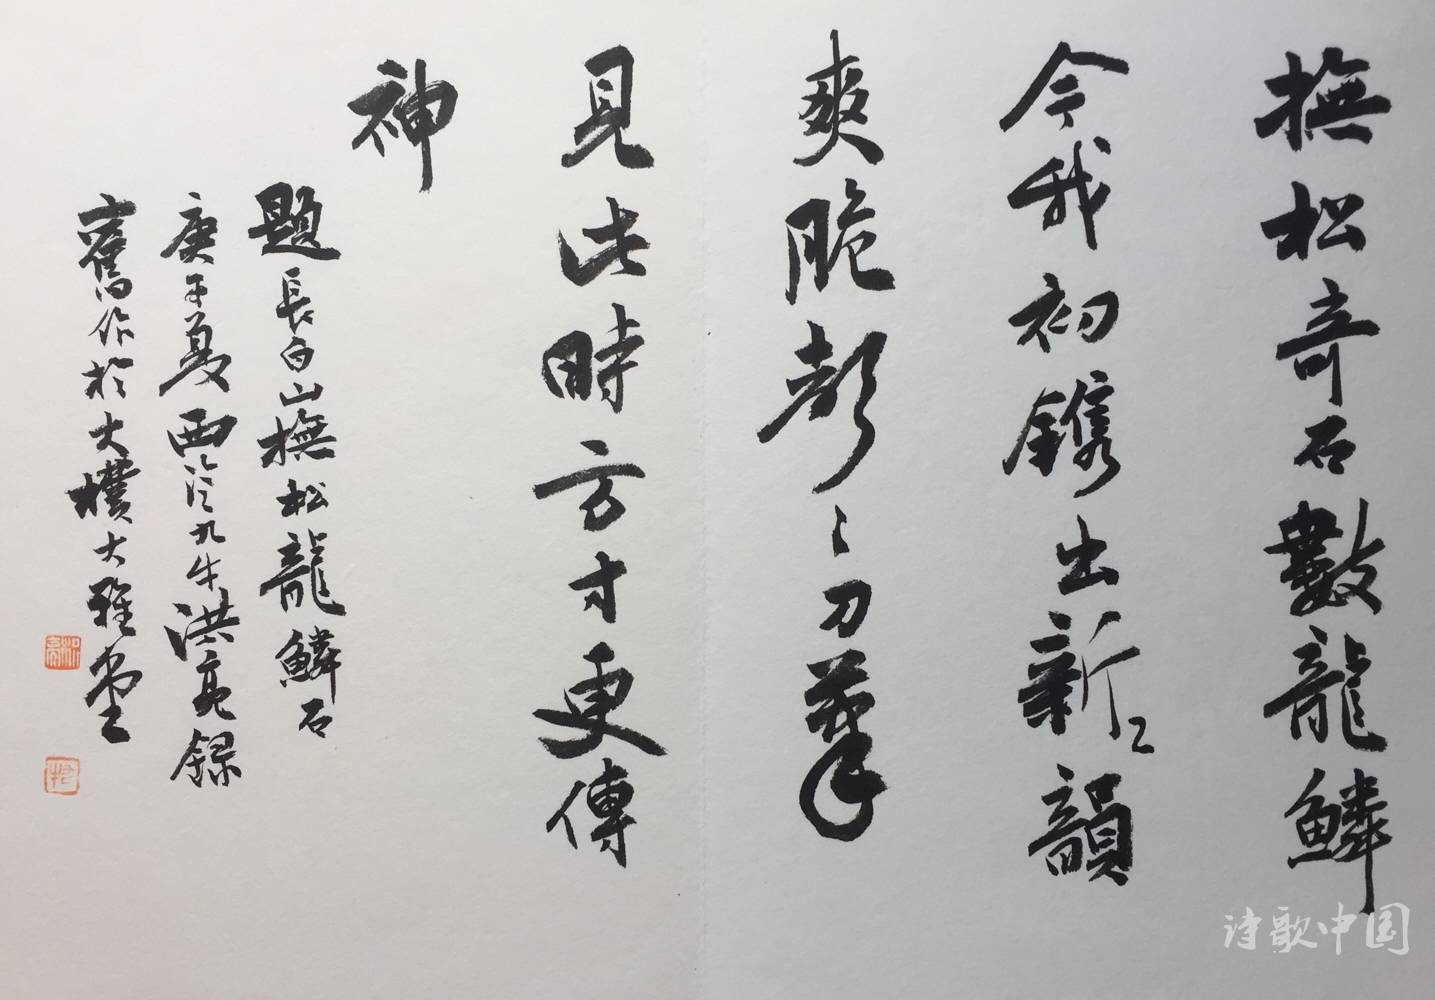 撫松奇石數龍鱗
今我初鐫出新〻韻
爽脆聲〻刀筆
見此時方寸更傳
神
題長白山撫松龍鱗石
庚子夏西泠九牛洪亮錄
舊作於大樸大雅堂
诗歌中国